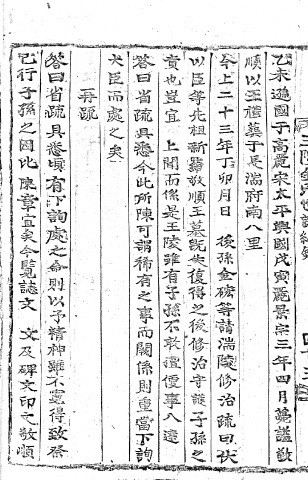 乙未遜國于高麗宋太平興國戊寅麗景宗三年四月薨謚敬
順以王禮葬于長湍府南八里
今上二十三年丁卯月日 後孫金礭等請湍陵修治疏曰伏
以臣等先祖新羅敬順王墓既失復得之後修治守護子孫之
責也豈宜 上聞而係是王陵雖有子孫不敢擅便事八達
答曰省疏具悉今此所陳可謂稀有之事而關係則重當下詢
大臣而處之矣
再疏
答曰省疏具悉頃有下詢處之命則以予精神雖不逮得致祭
已行子孫之因此陳章宜矣今覧誌文 文及碑文印之敬順